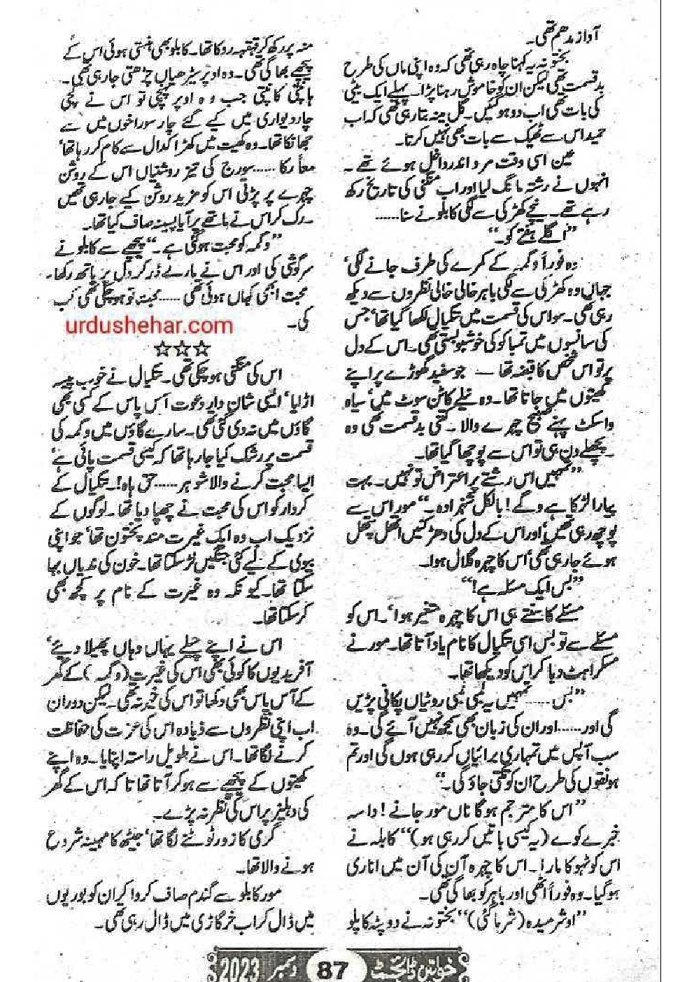 آواز مدھم تھی۔
بختونہ یہ کہنا چاہ رہی تھی کہ وہ اپنی ماں کی طرح
بدقسمت تھی لیکن ان کو خاموش رہنا پڑا۔ پہلے ایک بیٹی
کی بات تھی اب دو ہو گئیں۔ گل مینہ بتا رہی تھی کہ اب
حمید اس سے ٹھیک سے بات بھی نہیں کرتا۔
عین اسی وقت مرد اندر داخل ہوئے تھے۔
انہوں نے رشتہ مانگ لیا اور اب منگنی کی تاریخ رکھ
رہے تھے۔ نیچے کھڑکی سے لگی کابلو نے سنا......
"اگلے ہفتے کو۔"
وہ فوراً وگمہ کے کمرے کی طرف جانے لگی'
جہاں وہ کھڑکی سے لگی باہر خالی خالی نظروں سے دیکھ
رہی تھی۔ سو اس کی قسمت میں ننگیال لکھا گیا تھا' جس
کی سانسوں میں تمباکو کی خوشبو بستی تھی۔ اس کے دل
پر تو اس شخص کا قبضہ تھا — جو سفید گھوڑے پر اپنے
کھیتوں میں جاتا تھا۔ وہ نیلے کاٹن سوٹ میں' سیاہ
واسکٹ پہنے صبیح چہرے والا۔ کتنی بدقسمت تھی وہ
۔ پچھلے دن ہی تو اس سے پوچھا گیا تھا۔
"تمہیں اس رشتے پر اعتراض تو نہیں۔ بہت
پیارا لڑکا ہے وگے! بالکل شہزادہ۔" مور اس سے
پوچھ رہی تھیں' اور اس کے دل کی دھڑکنیں اتھل پتھل
ہوئے جا رہی تھی' اس کا چہرہ گلال ہوا۔
"بس ایک مسئلہ ہے!"
مسئلے کا سنتے ہی اس کا چہرہ متغیر ہوا' اس کو
مسئلے سے تو بس اسی ننگیال کا نام یاد آتا تھا۔ مور نے
مسکراہٹ دبا کر اس کو دیکھا تھا۔
"بس ...... تمہیں یہ لمبی لمبی روٹیاں پکانی پڑیں
گی اور...... اور ان کی زبان بھی سمجھ نہیں آئے گی۔ وہ
سب آپس میں تمہاری برائیاں کر رہی ہوں گی اور تم
ہونقوں کی طرح ان کو تکتی جاؤ گی۔"
"اس کا مترجم ہوگا ناں مور جانے! داسہ
خبرے کوے (یہ کیسی باتیں کر رہی ہو)" کابلہ نے
اس کو ٹہوکا مارا۔ اس کا چہرہ آن کی آن میں اناری
ہوگیا۔ وہ فوراً اٹھی اور باہر کو بھاگی تھی۔
"او شرمیدہ (شرما گئی)" بختونہ نے دوپٹہ کا پلو
منہ پر رکھ کر قہقہہ روکا تھا۔ کابلو بھی ہنستی ہوئی اس کے
پیچھے بھاگی تھی۔ وہ اوپر سیڑھیاں چڑھتی جا رہی تھی۔
ہانپتی کانپتی جب وہ اوپر پہنچی تو اس نے کچی
چار دیواری میں کیے گئے چار سوراخوں میں سے
جھانکا تھا۔ وہ کھیت میں کھڑا کدال سے کام کر رہا تھا'
معاً رکا ...... سورج کی تیز روشنیاں اس کے روشن
چہرے پر پڑتی اس کو مزید روشن کیے جا رہی تھیں
۔ رک کر اس نے ماتھے پر آیا پسینہ صاف کیا تھا۔
"وگمہ کو محبت ہوگئی ہے۔" پیچھے سے کابلو نے
سرگوشی کی اور اس نے مارے ڈر کر دل پر ہاتھ رکھا۔
محبت ابھی کہاں ہوئی تھی ...... محبت تو ہو چکی تھی کب
کی۔
urdushehar.com
☆☆☆
اس کی منگنی ہو چکی تھی۔ ننگیال نے خوب پیسہ
اڑایا' ایسی شان دار دعوت آس پاس کے کسی بھی
گاؤں میں نہ دی گئی تھی۔ سارے گاؤں میں وگمہ کی
قسمت پر رشک کیا جا رہا تھا کہ کیسی قسمت پائی ہے'
ایسا محبت کرنے والا شوہر ...... حق ہاہ! ننگیال کے
کردار کو اس کی محبت نے چھپا دیا تھا۔ لوگوں کے
نزدیک اب وہ ایک غیرت مند پختون تھا' جو اپنی
بیوی کے لیے کئی جنگیں لڑ سکتا تھا۔ خون کی ندیاں بہا
سکتا تھا۔ کیونکہ وہ غیرت کے نام پر کچھ بھی
کر سکتا تھا۔
اس نے اپنے چیلے یہاں وہاں پھیلا دیے'
آفریدیوں کا کوئی بھی اس کی غیرت (وگمہ) کے گھر
کے آس پاس بھی دکھا تو اس کی خیر نہ تھی۔ لیکن دوران
اب اپنی نظروں سے زیادہ اس کی عزت کی حفاظت
کرنے لگا تھا۔ اس نے طویل راستہ اپنایا۔ وہ اپنے
کھیتوں کے پیچھے سے ہو کر آتا تھا تا کہ اس کے گھر
کی دہلیز پر اس کی نظر نہ پڑے۔
گرمی کا زور ٹوٹنے لگا تھا' جیٹھ کا مہینہ شروع
ہونے والا تھا۔
مور کابلو سے گندم صاف کروا کر ان کو بوریوں
میں ڈال کر اب خرگاڑی میں ڈال رہی تھی۔
خواتین ڈائجسٹ 87 دسمبر 2023